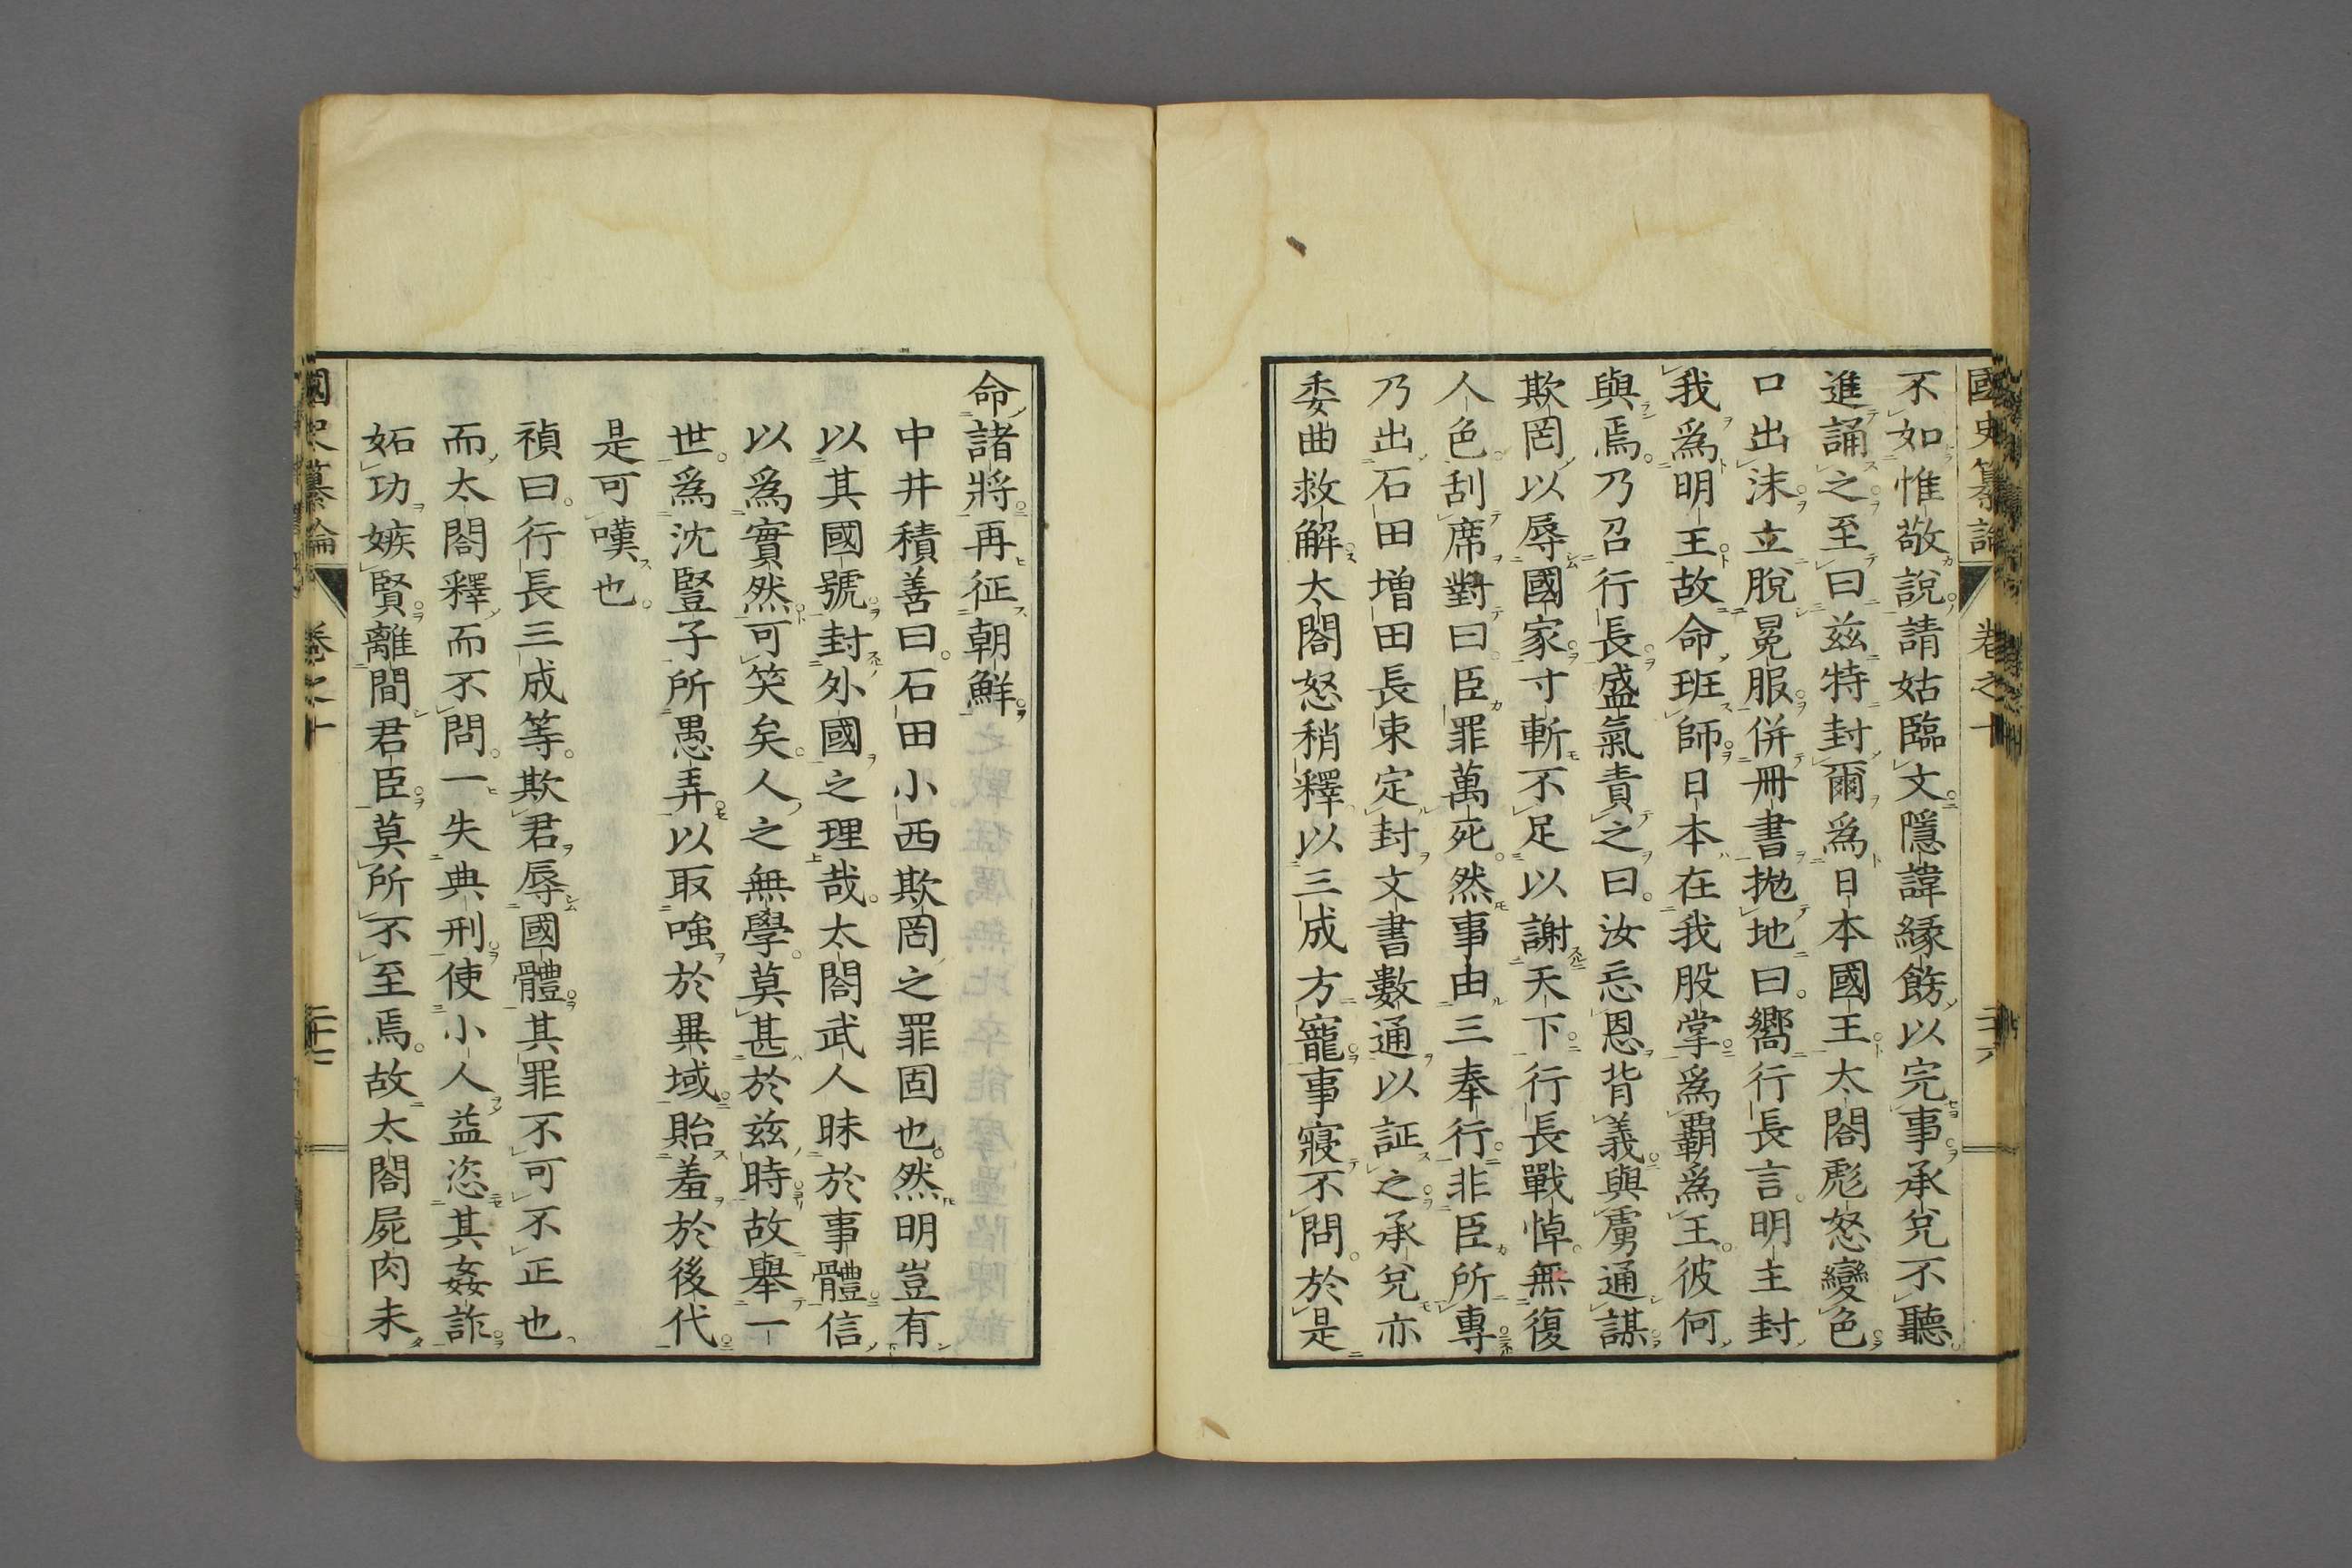 國史纂論 卷之十
不如惟敬說請姑臨文隱諱緣餝以完事承兌不聽
進誦之至曰茲特封爾爲日本國王太閤彪怒變色
口出沫立脫冕服併冊書抛地曰嚮行長言明主封
我爲明王故命班師日本在我股掌爲覇爲王彼何
與焉乃召行長盛氣責之曰汝忘恩背義與虜通謀
欺罔以辱國家寸斬不足以謝天下行長戰悼無復
人色刮席對曰臣罪萬死然事由三奉行非臣所專
乃出石田增田長束定封文書數通以証之承兌亦
委曲救解太閤怒稍釋以三成方寵事寢不問於是
命諸將再征朝鮮
中井積善曰石田小西欺罔之罪固也然明豈有
以其國號封外國之理哉太閤武人昧於事體信
以爲實然可笑矣人之無學莫甚於茲時故舉一
世爲沈豎子所愚弄以取嗤於異域貽羞於後代
是可嘆也
禎曰行長三成等欺君辱國體其罪不可不正也
而太閤釋而不問一失典刑使小人益恣其姦詐
妬功嫉賢離間君臣莫所不至焉故太閤屍肉未
國史纂論 卷之十